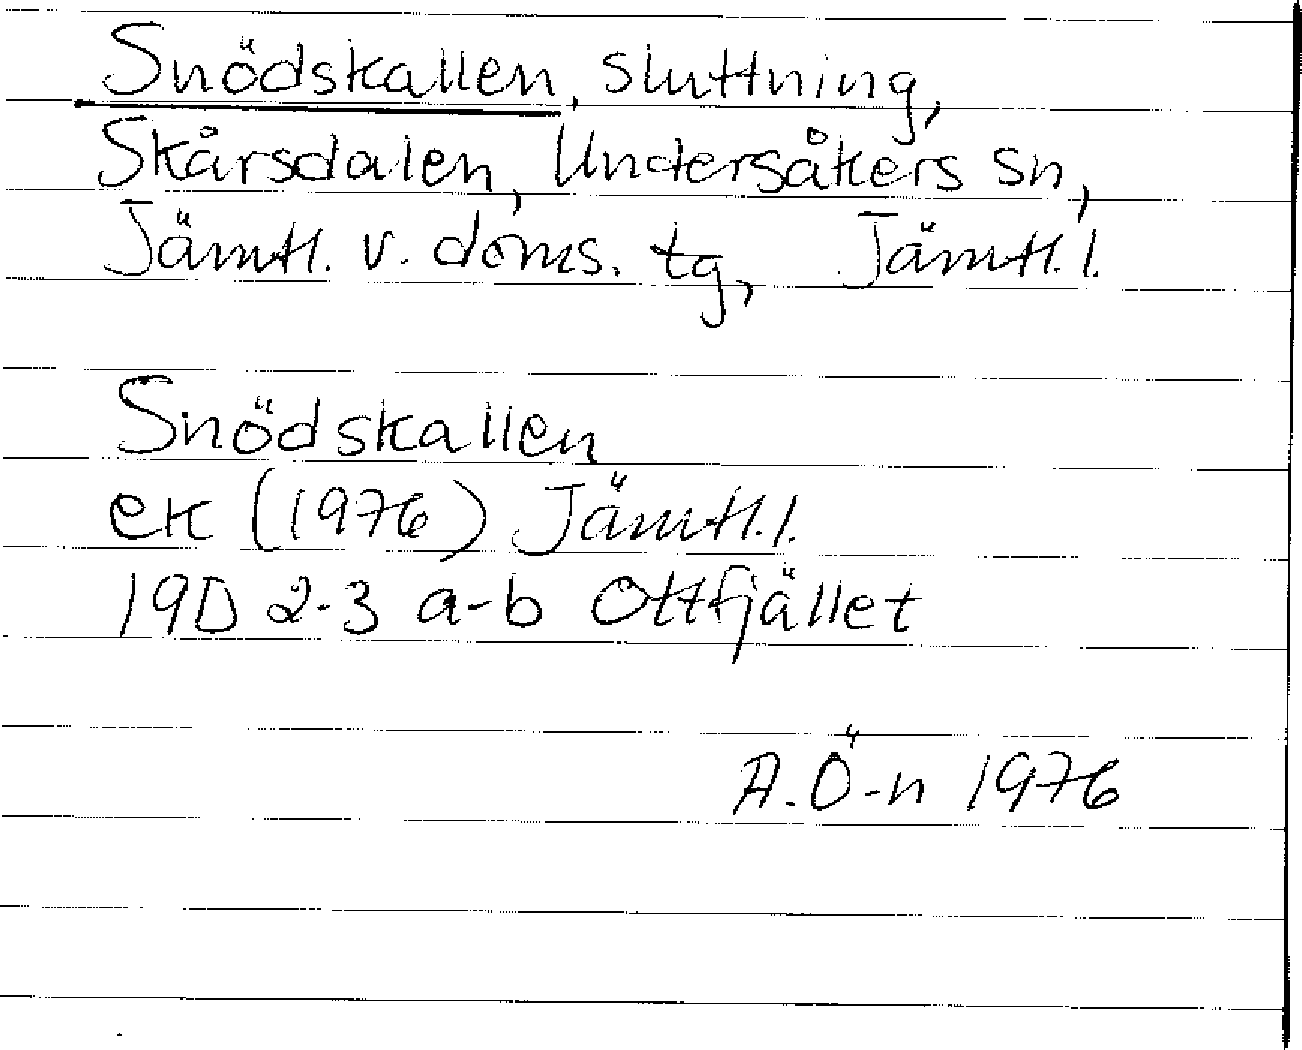 Snödskallen, sluttning,
Skårsdalen, Undersåkers sn,
Jämtl. v. doms. tg, Jämtl. l.
Snödskallen
ek (1976) Jämtl. l.
19D 2-3 a-b Ottfjället
A. Ö-n 1976